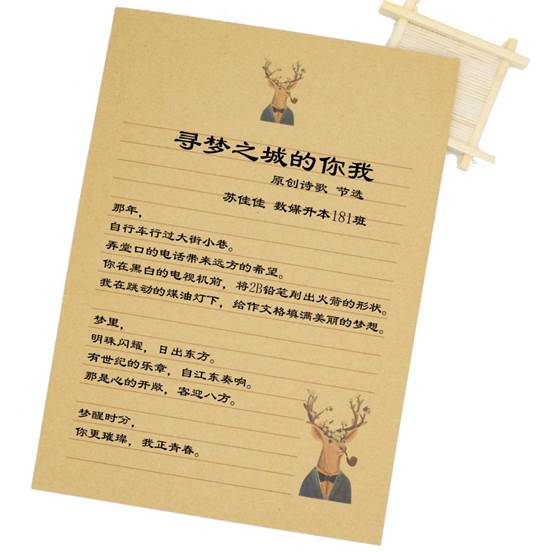 寻梦之城的你我
原创诗歌 节选
苏佳佳 数媒升本181班
那年，
自行车行过大街小巷。
弄堂口的电话带来远方的希望。
你在黑白的电视机前，将2B铅笔削出火箭的形状。
我在跳动的煤油灯下，给作文格填满美丽的梦想。
梦里，
明珠闪耀，日出东方。
有世纪的乐章，自江东奏响。
那是心的开敞，客迎八方。
梦醒时分，
你更璀璨，我正青春。